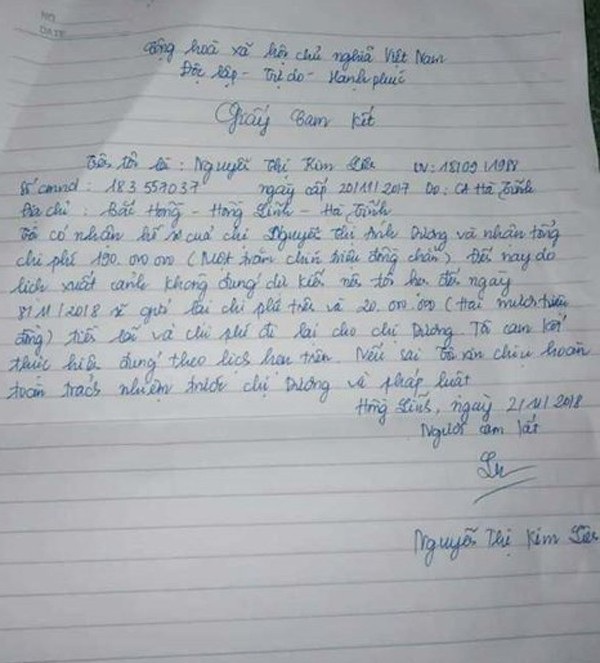 NO.
DATE
Cộng hoà xã hội chủ nghĩa Việt Nam
Độc lập - Tự do - Hạnh phúc
Giấy Cam kết
Tên tôi là : Nguyễn Thị Kim 1988
Số cmnd : 183 557037 ngày cấp 20/11/2017 Do : CA Hà Tĩnh
Địa chỉ : Bắc Hồng - Hồng Lĩnh - Hà Tĩnh
Tôi có nhận hồ sơ của chị Nguyễn Thị Ánh Dương và nhận tổng
chi phí 190.000.000 (Một trăm chín triệu đồng chẵn) Đến nay do
lịch xuất cảnh không đúng dự kiến nên tôi hẹn đến ngày
8/11/2018 sẽ gửi lại chi phí trên và 20.000.000 (Hai mươi triệu
đồng) tiền lãi và chi phí đi lại cho chị Dương. Tôi cam kết
thực hiện đúng theo lịch hẹn trên. Nếu sai tôi xin chịu hoàn
toàn trách nhiệm trước chị Dương và pháp luật
Hồng Lĩnh, ngày 2/11/2018
Người cam kết
Nguyễn Thị Kim